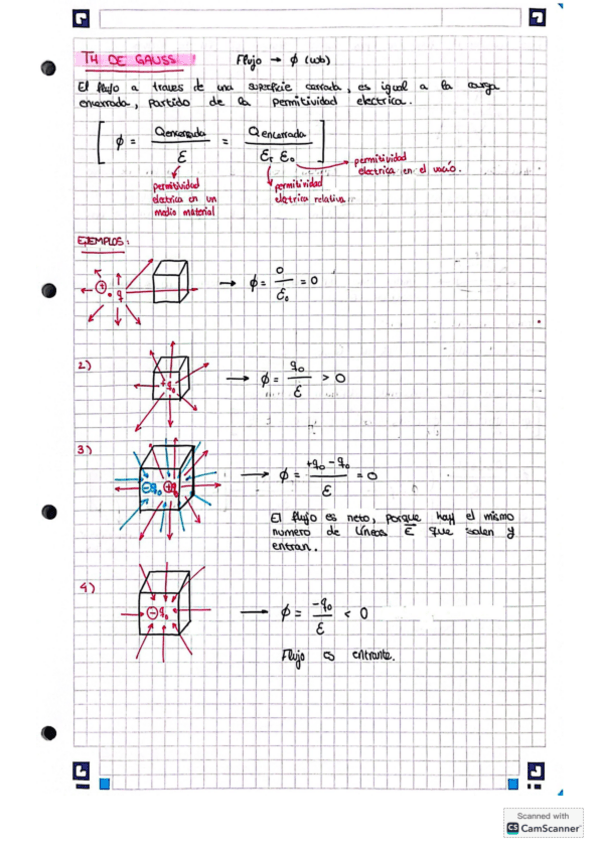 TH DE GAUSS. Flujo → ϕ (wb)
El flujo a traves de una superficie cerrada, es igual a la carga
encerrada, partido de la permitividad electrica.
[ ϕ = Qencerrada / ε = Qencerrada / εr ε0 ]
permitividad
electrica en el vacío.
permitividad
electrica en un
medio material
permitividad
eléctrica relativa
EJEMPLOS:
+ q → ϕ = 0 / ε0 = 0
2) +q0 → ϕ = q0 / ε > 0
3) -q0 +q → ϕ = +q0 - q0 / ε = 0
El flujo es neto, porque hay el mismo
numero de líneas E que salen y
entran.
4) -q0 → ϕ = -q0 / ε < 0
Flujo es entrante.
Scanned with
CS CamScanner